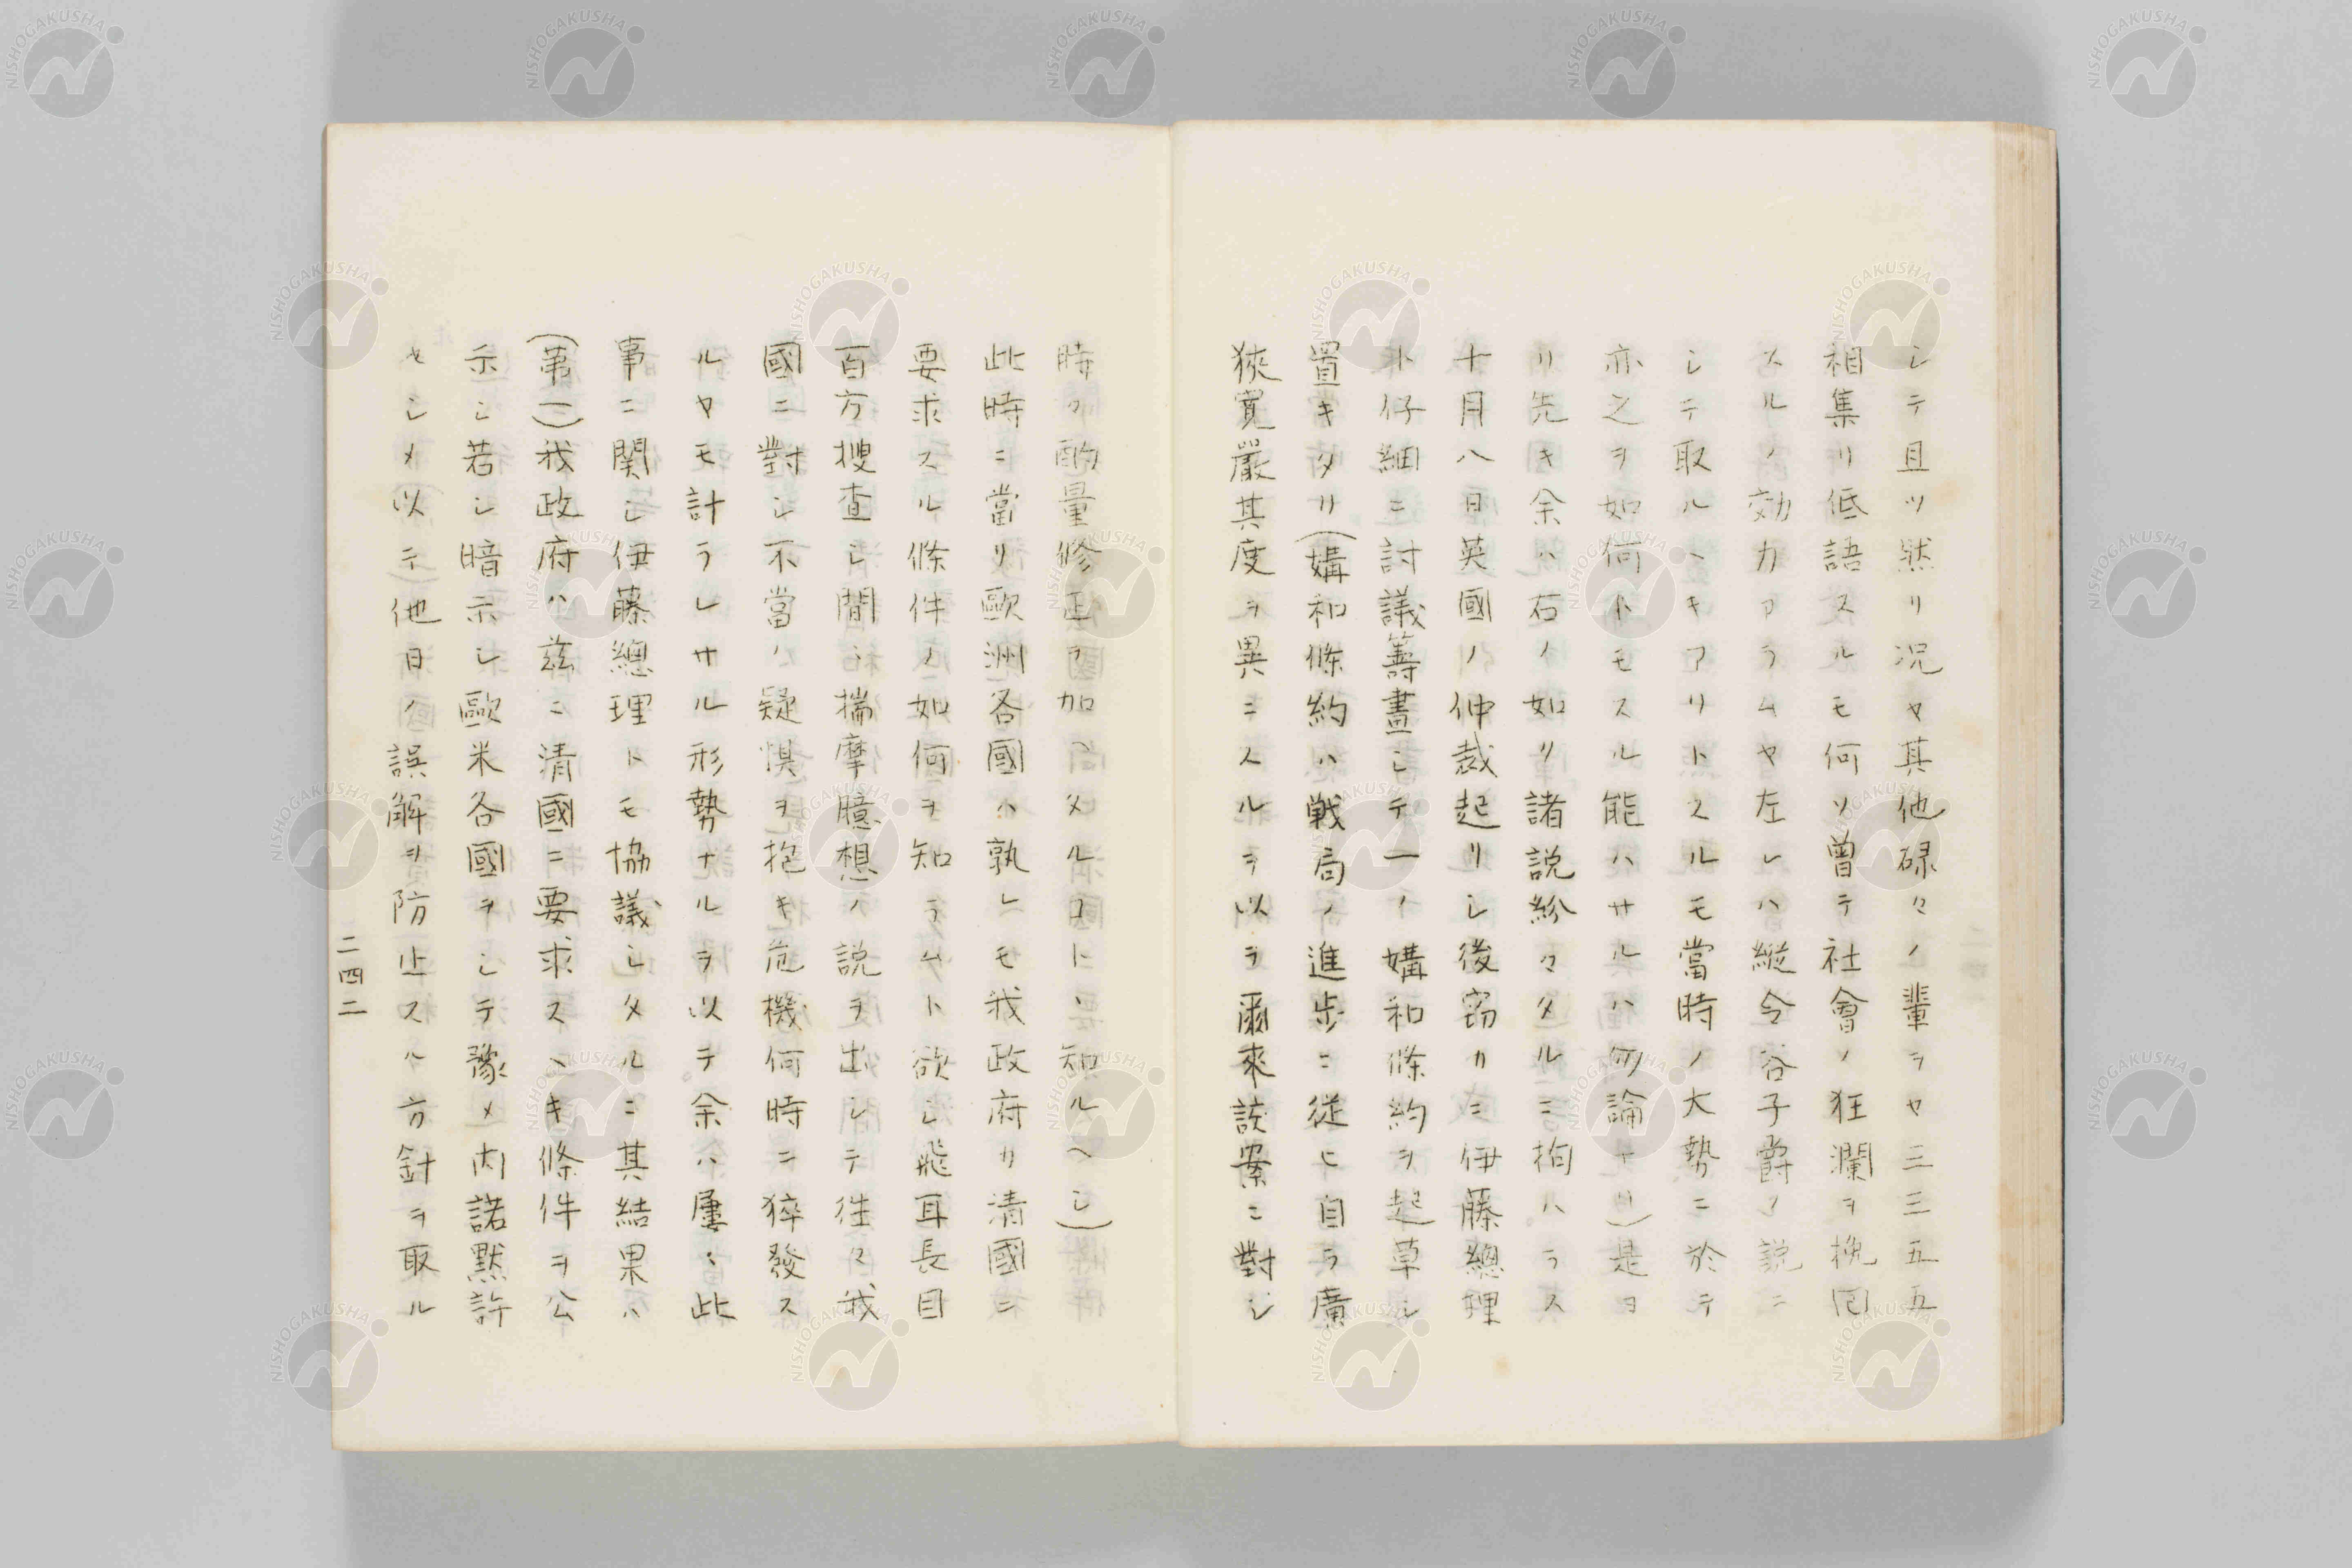 シテ且ツ然リ况ヤ其他碌々ノ輩ヲヤ三三五五
相集リ低語スルモ何ソ曾テ社會ノ狂瀾ヲ挽回
スルノ効力アラムヤ左レハ縦令谷子爵ノ説ニ
シテ取ルヘキアリトスルモ當時ノ大勢ニ於テ
亦之ヲ如何トモスル能ハサルハ勿論ナリ)是ヨ
リ先キ余ハ右ノ如リ諸説紛々タルニ拘ハラス
十月八日英國ノ仲裁起リシ後窃カニ伊藤總理
ト仔細ニ討議籌畫シテ一ノ媾和條約ヲ起草シ
置キタリ(媾和條約ハ戦局ノ進歩ニ従ヒ自ラ廣
狹寛嚴其度ヲ異ニスルヲ以ラ爾來該案ニ對シ
時々酌量修正ヲ加ヘタルコトハ要知ルヘシ)
此時ニ當リ歐洲各國ハ孰レモ我政府カ清國ニ
要求スル條件ノ如何ヲ知ラムト欲シ飛耳長目
百方捜査シ間ニ揣摩臆想ノ説ヲ出シテ往々我
國ニ對シ不當ノ疑惧ヲ抱キ危機何時ニ猝發ス
ルヤモ計ラレサル形勢ナルヲ以テ余ハ屢〻此
事ニ関シ伊藤總理トモ協議シタルニ其結果ハ
(第一)我政府ハ茲ニ清國ニ要求スヘキ條件ヲ公
示シ若シ暗示シ歐米各國ヲシテ豫メ内諾黙許
セシメ以テ他日ノ誤解ヲ防止スル方針ヲ取ル
二四二
NISHOGAKUSHA